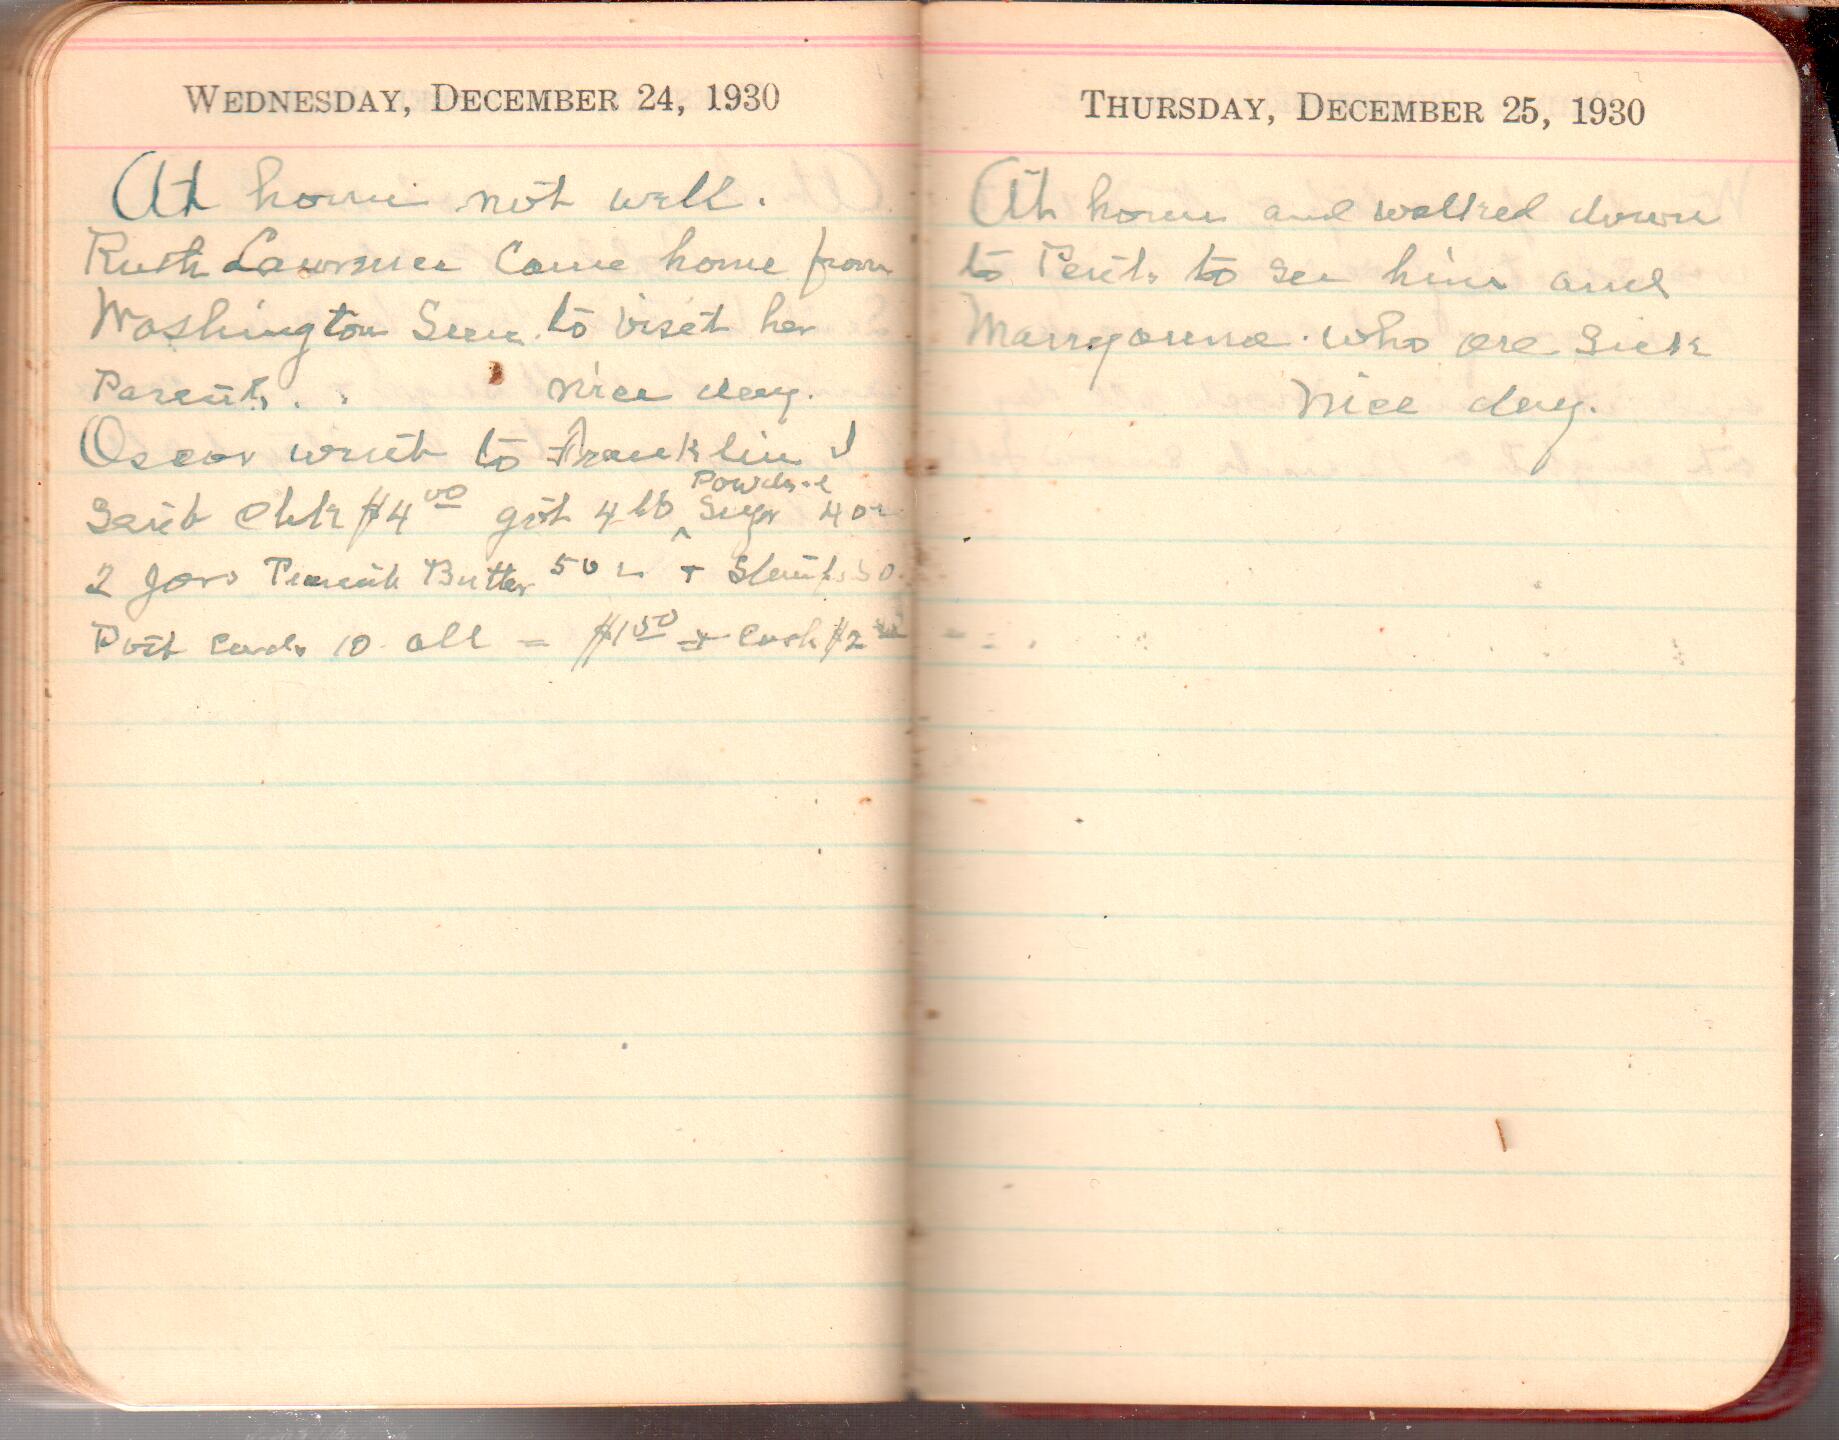 WEDNESDAY, DECEMBER 24, 1930
At home not well.
Ruth Lawrence Came home from
Washington Sem. to viset her
Parents. nice day.
Oscar went to Franklin I
Sent Chk $4 00 got 4 lb Powdered Sugar 40
2 Jars Peanut Butter 50 + Stamps 50
Post Cards 10 all = $1 50 + Cash $2
THURSDAY, DECEMBER 25, 1930
At home and walked down
to to see him and
who are Sick
nice day.